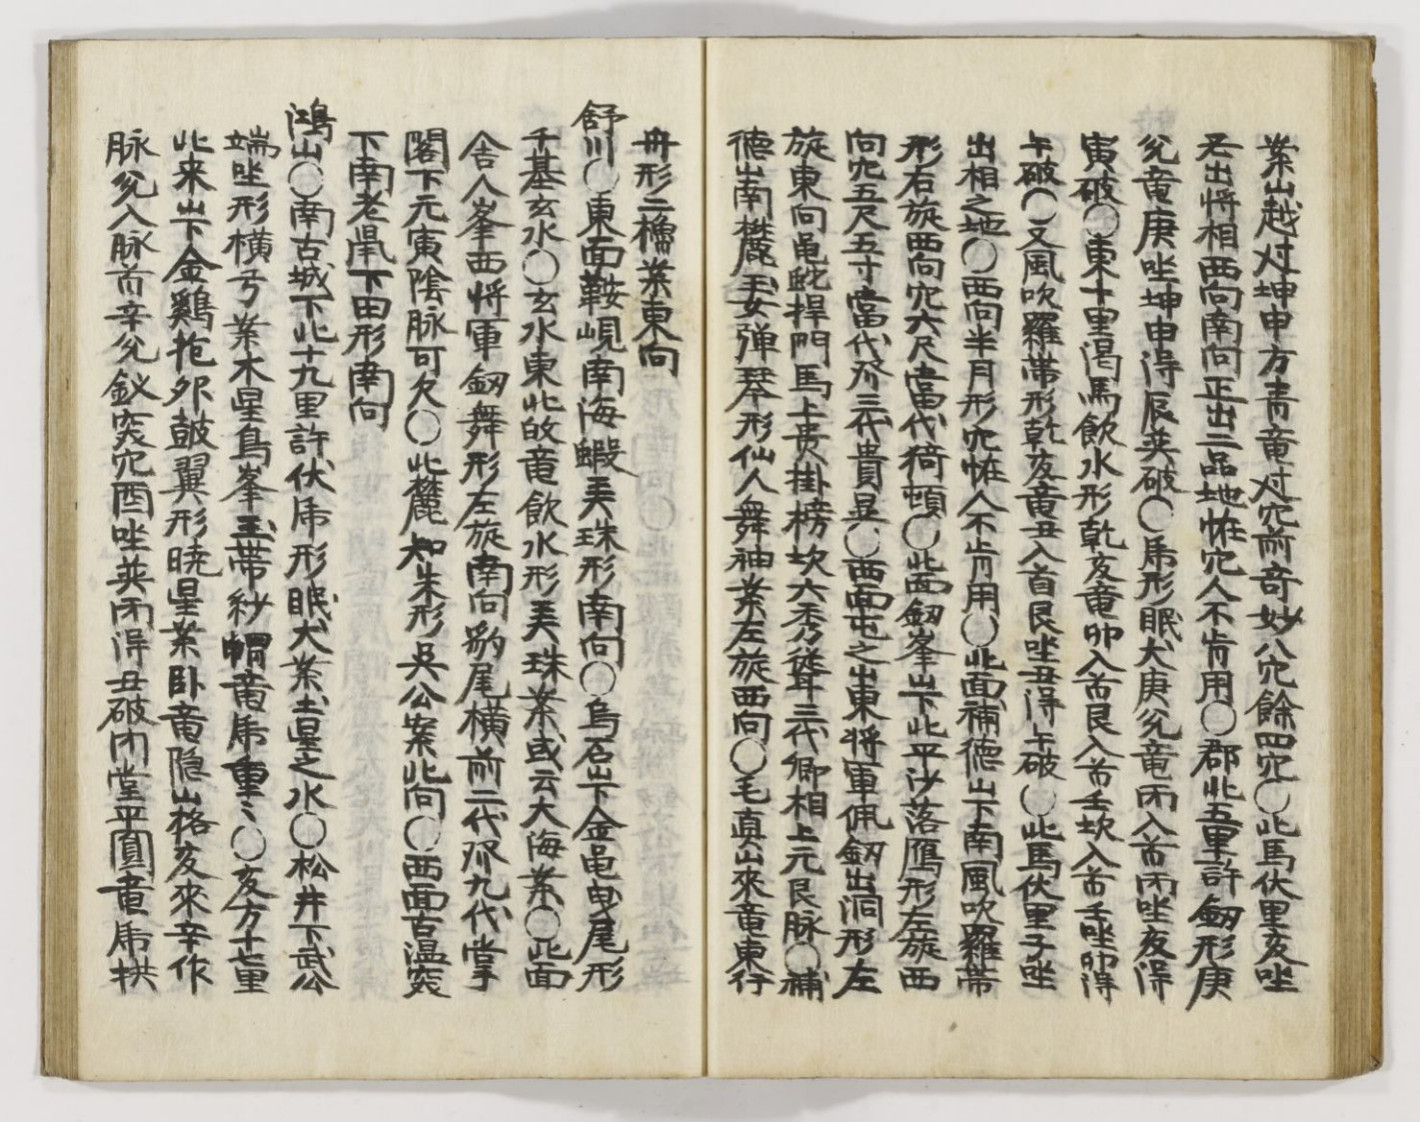 案山越対坤申方青竜対穴前奇妙八穴餘四穴○北馬伏里亥坐
丟出将相西向南向正出二品地恠穴人不肯用○郡北五里許釼形庚
兊竜庚坐坤申淂辰巽破○乕形眠犬庚兊竜丙入首丙坐亥淂
寅破○東十里渴馬飲水形乾亥竜卯入首艮入首壬坎入首壬坐卯淂
午破○又風吹羅帶形乾亥竜丑入首艮坐丑淂午破○北馬伏里子坐
出相之地○西向半月形穴恠人不肯用○北面補德山下南風吹羅帶
形右旋西向穴六尺當代猗頓○北面釼峯山下北平沙落鴈形左旋西
向穴五尺五寸當代發三代貴昌○西面屯之出東将軍佩釼出洞形左
旋東向黽蛇捍門馬上貴掛榜坎六秀聳三代卿相上元艮脉○補
德山南麓玉女弾琴形仙人舞袖案左旋西向○毛眞山來竜東行
舟形二櫓案東向
舒川○東面鞍峴南海蝦弄珠形南向○烏石山下金黽曳尾形
千基玄水○玄水東北的竜飲水形弄珠案或云大海案○北面
舎人峯西将軍釼舞形左旋南向豹尾橫前二代發九代掌
閣下元寅陰脉可欠○北麓知朱形吳公案北向○西面古温突
下南老鼠下田形南向
鴻山○南古城下北十九里許伏乕形眠犬案土星之水○松井下武公
端坐形橫弓案木星鳥峯玉帶紗帽竜乕重〻○亥方十七里
北来山下金鷄抱卵皷翼形曉星案卧竜隐山格亥來辛作
脉兊入脉首辛兊釵突穴酉坐巽丙淂丑破内堂平圓竜乕拱